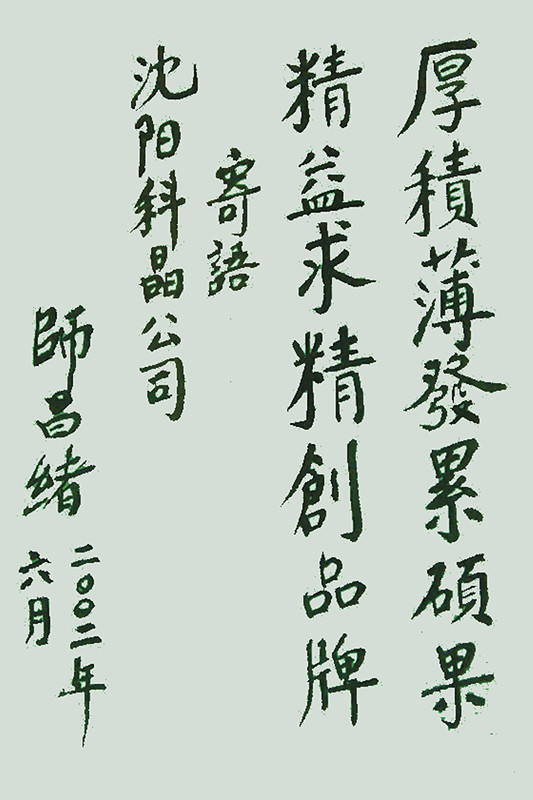 厚積薄發累碩果
精益求精創品牌
寄語
沈阳科晶公司
師昌緒
二〇〇二年
六月